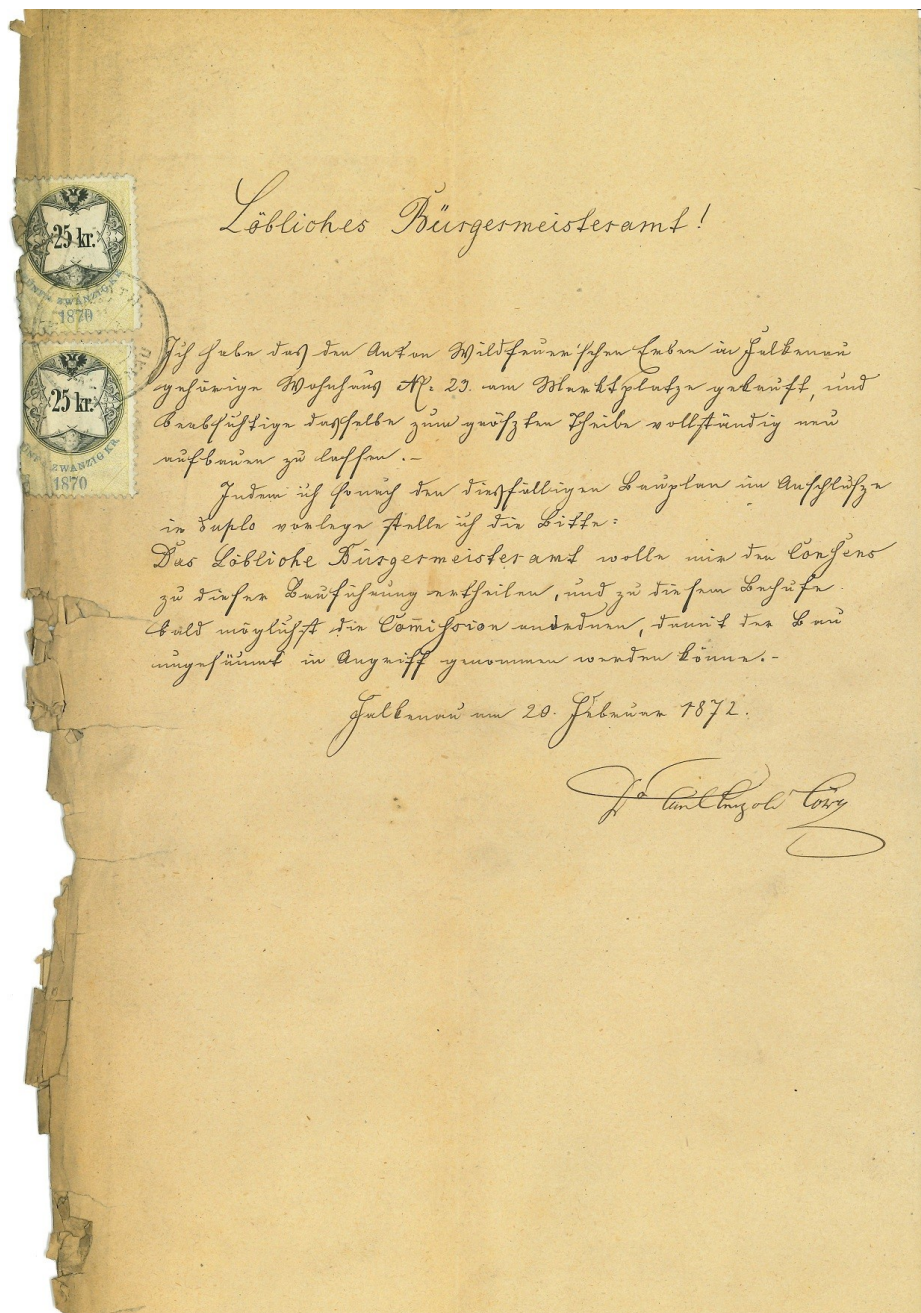 25 kr.
FÜNF U. ZWANZIG KR.
1870
25 kr.
FÜNF U. ZWANZIG KR.
1870
Löbliches Bürgermeisteramt!
Ich habe das den Anton Wildfeuer'schen Erben in Falkenau
gehörige Wohnhaus N: 23. am Marktplatze gekauft, und
beabsichtige dasselbe zum größzten Theile vollständig neu
aufbauen zu lassen.-
Indem ich sonach den diesfälligen Bauplan im Anschlußze
in duplo vorlege stelle ich die Bitte:
Das Löbliche Bürgermeisteramt wolle mir den Consens
zu dieser Bauführung ertheilen, und zu diesem Behufe
bald möglichst die Com̄ission anordnen, damit der Bau
ungesäumt in Angriff genommen werden könne.-
Falkenau am 20. Februar 1872.
Dr